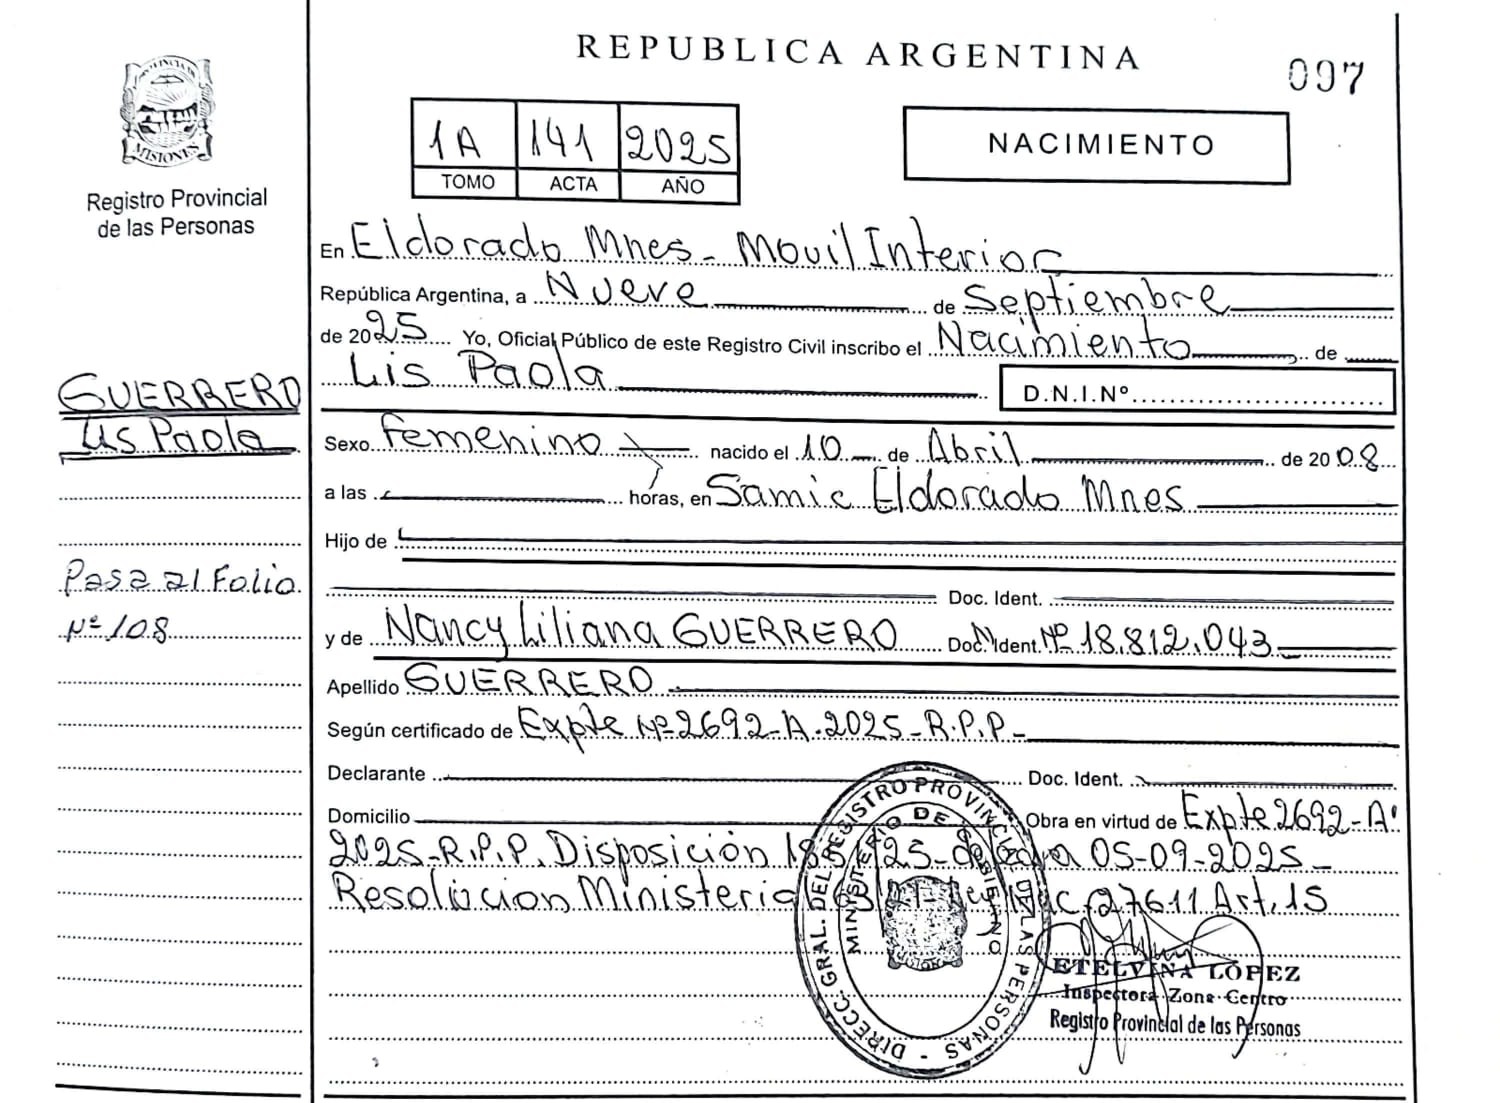 REPUBLICA ARGENTINA
097
PROVINCIA DE
MISIONES
Registro Provincial
de las Personas
1A 141 2025
TOMO ACTA AÑO
NACIMIENTO
En Eldorado Mnes - Movil Interior
República Argentina, a Nueve de Septiembre
de 2025 Yo, Oficial Público de este Registro Civil inscribo el Nacimiento de
Lis Paola
D.N.I.Nº
GUERRERO
Lis Paola
Sexo Femenino nacido el 10 de Abril de 2008
a las horas, en Samic Eldorado Mnes
Hijo de
Doc. Ident.
Pasa al Folio
Nº 108
y de Nancy Liliana GUERRERO Doc. Ident. Nº 18.812.043
Apellido GUERRERO
Según certificado de Expte Nº 2692-A-2025-R.P.P-
Declarante Doc. Ident.
Domicilio Obra en virtud de Expte 2692-A
2025-R.P.P. Disposición 25- de 05-09-2025-
Resolucion 27611 Art. 15
DIRECC. GRAL. DEL REGISTRO PROVINCIAL DE LAS PERSONAS
MINISTERIO DE GOBIERNO
ETELVINA LOPEZ
Inspectora Zona Centro
Registro Provincial de las Personas